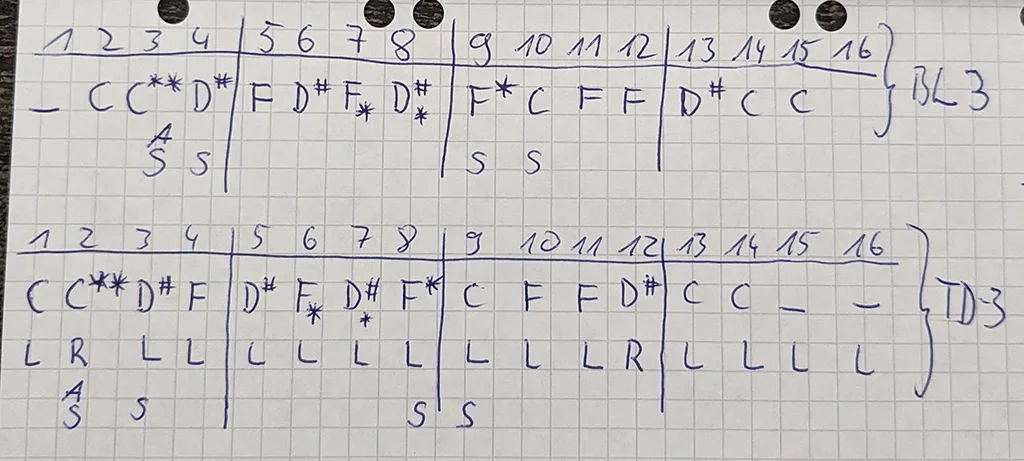 1 2 3 4 5 6 7 8 9 10 11 12 13 14 15 16
_ C C** D# F D# F* D#* F* C F F D# C C BL3
A
S S S S
1 2 3 4 5 6 7 8 9 10 11 12 13 14 15 16
C C** D# F D# F* D#* F* C F F D# C C _ _ TD-3
L R L L L L L L L L L R L L L L
A
S S S S